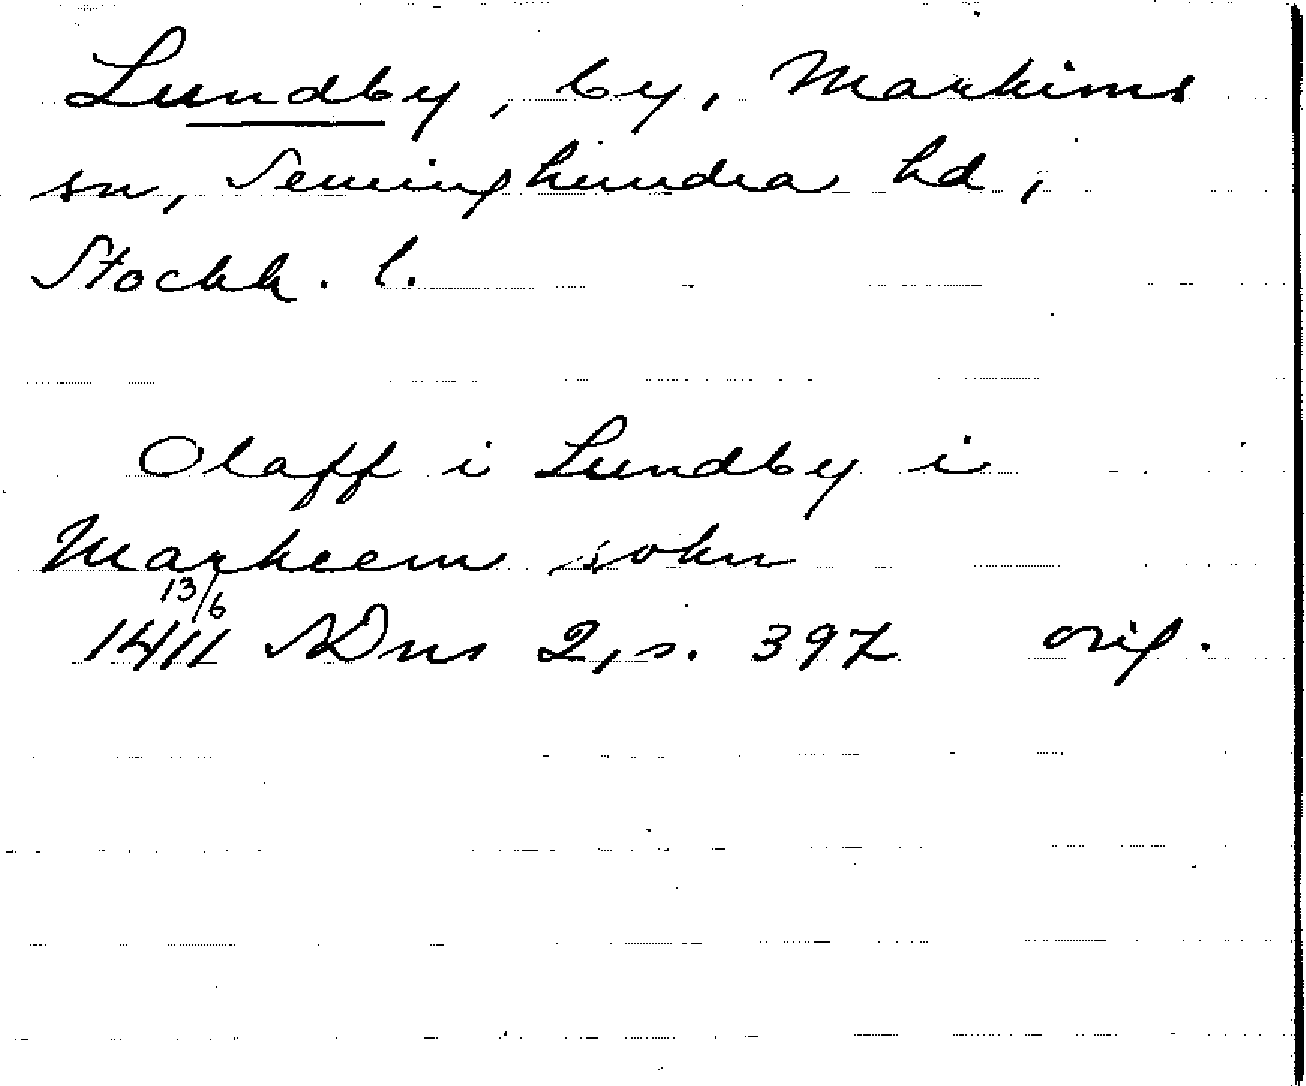 Lundby, by, Markims
sn, Seminghundra hd,
Stockh. l.
Olaff i Lundby i
Markeem sokn
13/6
1411 SDns 2, s. 397 orig.